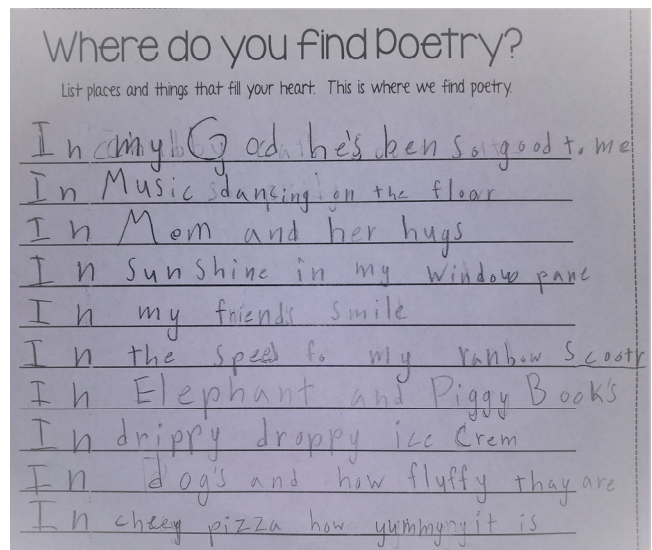 Where do you find Poetry?
List places and things that fill your heart. This is where we find poetry.
In my God he's ben so good to me
In Music dancing on the floor
In Mom and her hugs
In Sunshine in my window pane
In my friends smile
In the speed fo my ranbow Scootr
In Elephant and Piggy Book's
In drippy droppy ice Crem
In dog's and how fluffy thay are
In cheey pizza how yummy it is